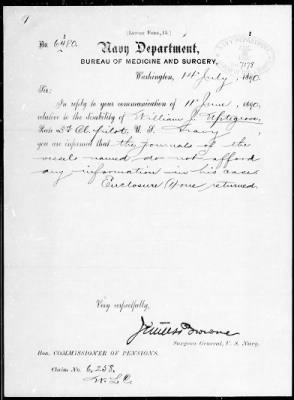 (LETTER FORM, 15.)
No. 6480.
Navy Department,
BUREAU OF MEDICINE AND SURGERY,
7178
Washington, 14" July, 1890.
Sir:
In reply to your communication of 11" June, 1890,
relative to the disability of William J. Uptegrove,
2d Cl. pilot, U. S. Navy
you are informed that the journals of the
vessels named do not afford
any information in his case.
Enclosure None returned.
Very respectfully,
Surgeon General, U. S. Navy.
Hon. COMMISSIONER OF PENSIONS.
Claim No. 6,258.